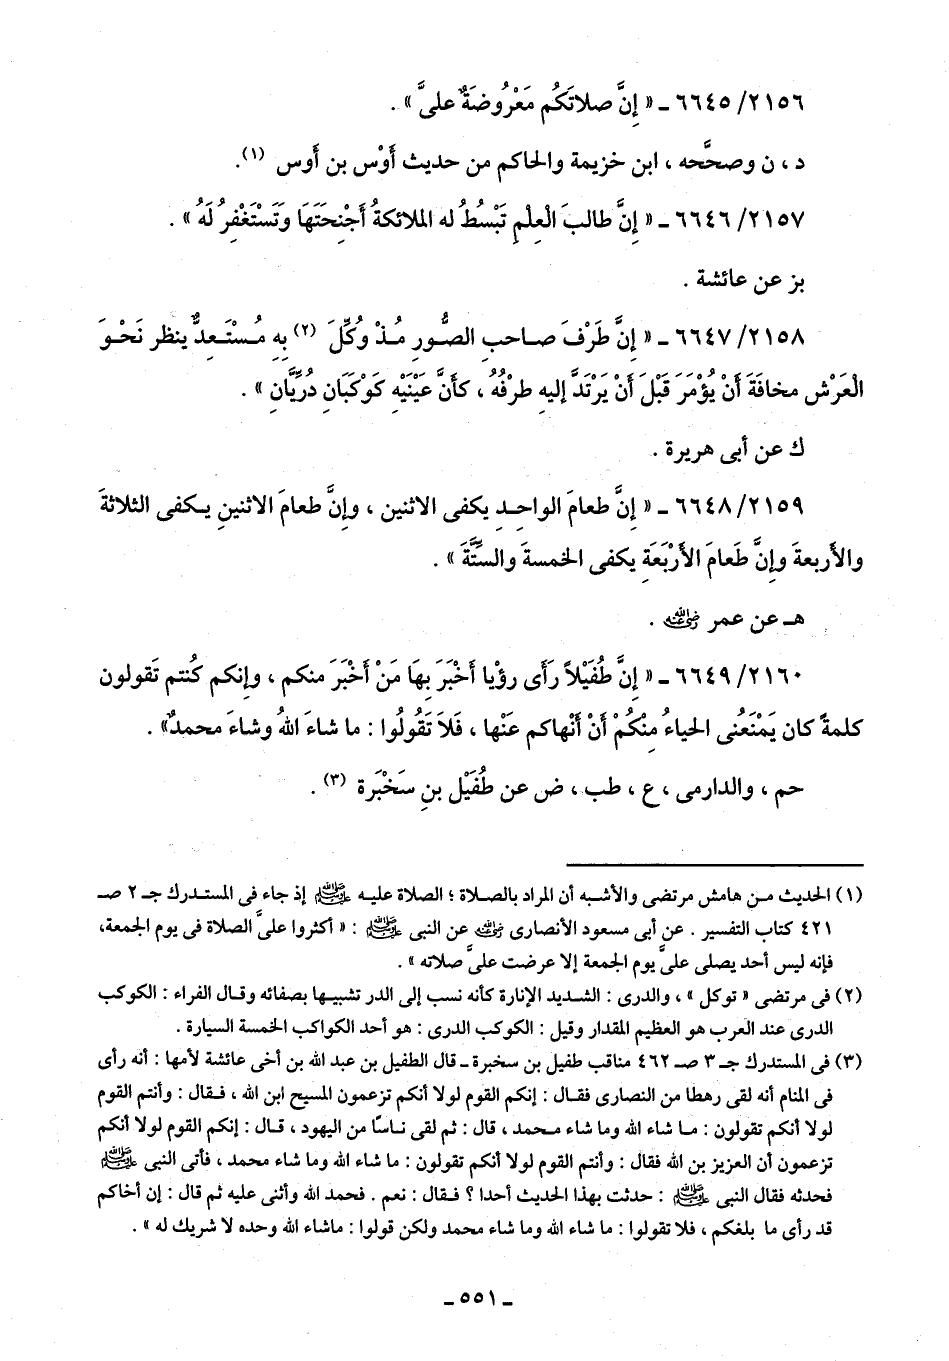 ٢١٥٦/ ٦٦٤٥ ـ « إِنَّ صلاتَكُم مَعْرُوضَةٌ علىَّ » .
د ، ن وصحَّحه ، ابن خزيمة والحاكم من حديث أَوْس بن أَوس (١).
٢١٥٧/ ٦٦٤٦ ـ « إِنَّ طالبَ الْعِلْمِ تَبْسُطُ له الملائكةُ أَجْنِحَتَهَا وَتَسْتَغْفِرُ لَهُ » .
بز عن عائشة .
٢١٥٨/ ٦٦٤٧ ـ « إِنَّ طَرْفَ صاحبِ الصُّورِ مُذْ وُكِّلَ (٢) بِهِ مُسْتَعِدٌّ ينظر نَحْوَ
الْعَرْش مخافَةَ أَنْ يُؤْمَرَ قَبْلَ أَنْ يَرْتَدَّ إليهِ طرفُهُ ، كأَنَّ عَيْنَيْهِ كَوْكَبَانِ دُرِّيَّان » .
ك عن أبى هريرة .
٢١٥٩/ ٦٦٤٨ ـ « إِنَّ طعامَ الواحِدِ يكفى الاثنين ، وإِنَّ طعامَ الاثنينِ يكفى الثلاثةَ
والأَربعةَ وإِنَّ طَعامَ الأَرْبَعَةِ يكفى الخمسةَ والسِّتَّةَ » .
هـ عن عمر رضي الله عنه .
٢١٦٠/ ٦٦٤٩ ـ « إِنَّ طُفَيْلاً رَأَى رؤْيا أَخْبَرَ بِهَا مَنْ أَخْبَرَ منكم ، وإِنكم كُنتم تَقولون
كلمةً كان يَمْنَعُنى الحياءُ مِنْكُمْ أَنْ أَنْهاكم عَنْها ، فَلاَ تَقُولُوا : ما شاءَ اللهُ وشاءَ محمدٌ» .
حم ، والدارمى ، ع ، طب ، ض عن طُفَيْل بنِ سَخْبَرة (٣) .
(١) الحديث من هامش مرتضى والأشبه أن المراد بالصلاة ؛ الصلاة عليه ﷺ إذ جاء فى المستدرك جـ ٢ صـ
٤٢١ كتاب التفسير . عن أبى مسعود الأنصارى رضي الله عنه عن النبى ﷺ : « أكثروا علىَّ الصلاة فى يوم الجمعة،
فإنه ليس أحد يصلى علىَّ يوم الجمعة إلا عرضت علىَّ صلاته » .
(٢) فى مرتضى « توكل » ، والدرى : الشديد الإنارة كأنه نسب إلى الدر تشبيها بصفائه وقال الفراء : الكوكب
الدرى عند العرب هو العظيم المقدار وقيل : الكوكب الدرى : هو أحد الكواكب الخمسة السيارة .
(٣) فى المستدرك جـ ٣ صـ ٤٦٢ مناقب طفيل بن سخبرة ـ قال الطفيل بن عبد الله بن أخى عائشة لأمها : أنه رأى
فى المنام أنه لقى رهطا من النصارى فقال : إنكم القوم لولا أنكم تزعمون المسيح ابن الله ، فقال : وأنتم القوم
لولا أنكم تقولون : ما شاء الله وما شاء محمد ، قال : ثم لقى ناسًا من اليهود ، قال : إنكم القوم لولا أنكم
تزعمون أن العزيز بن الله فقال : وأنتم القوم لولا أنكم تقولون : ما شاء الله وما شاء محمد ، فأتى النبى ﷺ
فحدثه فقال النبى ﷺ : حدثت بهذا الحديث أحدا ؟ فقال : نعم . فحمد الله وأثنى عليه ثم قال : إن أخاكم
قد رأى ما بلغكم ، فلا تقولوا : ما شاء الله وما شاء محمد ولكن قولوا : ماشاء الله وحده لا شريك له » .
ـ ٥٥١ ـ